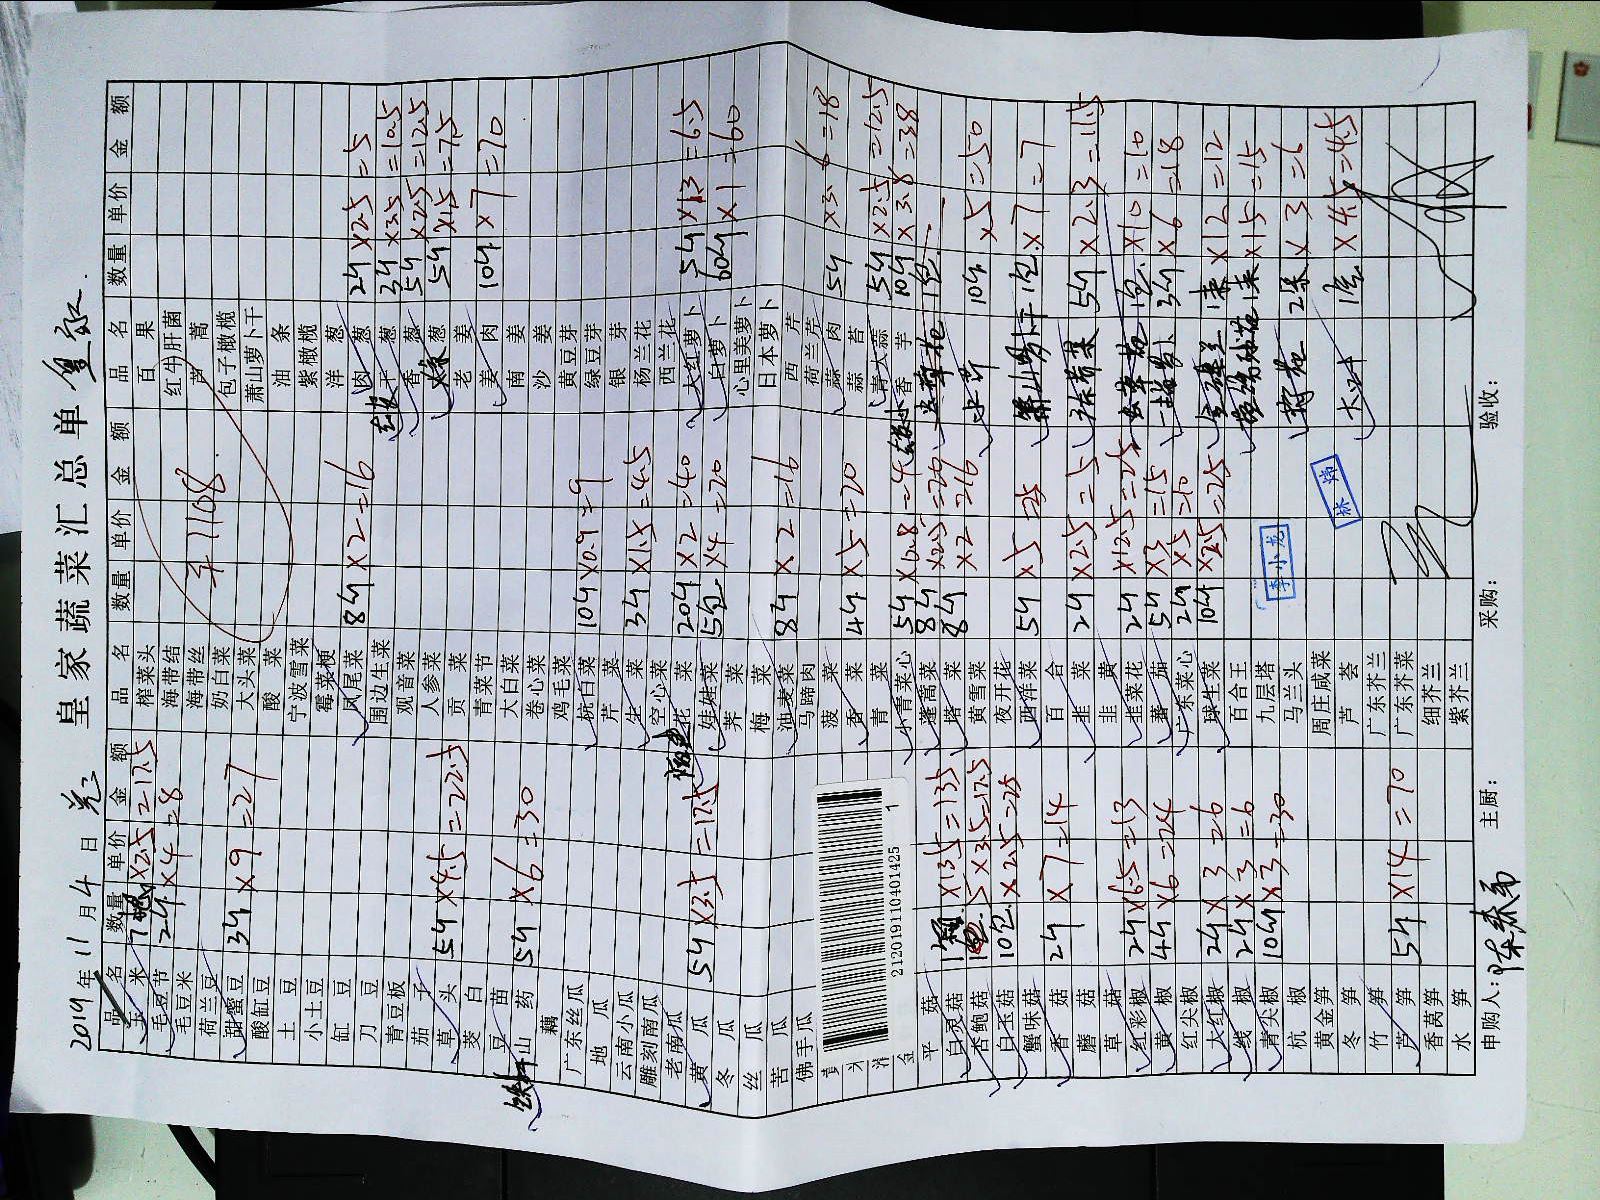 皇家蔬菜汇总单
2019年11月4日
品名 数量 单价 金额
玉米 ×2.5=17.5
毛豆节 2斤×4=8
毛豆米
荷兰豆
甜蜜豆 3斤×9=27
酸缸豆
土豆
小土豆
缸豆
刀豆
青豆板
茄子
草头 5斤×4.5=22.5
茭白
豆苗
山药 5斤×6=30
藕
广东丝瓜
地瓜
云南小瓜
雕刻南瓜
老南瓜
黄瓜 5斤×3.5=17.5
冬瓜
丝瓜
苦瓜
佛手瓜
2120191101401425 1
平菇
白灵菇 ×13.5=13.5
杏鲍菇 5×3.5=17.5
白玉菇 10包×2.5=25
蟹味菇
香菇 2斤×7=14
蘑菇
草菇
红彩椒 2斤×6.5=13
黄椒 4斤×6=24
红尖椒
大红椒 2斤×3=6
线椒 2斤×3=6
青尖椒 10斤×3=30
杭椒
黄金笋
冬笋
竹笋
芦笋 5斤×14=70
香莴笋
水笋
品名 数量 单价 金额
榨菜头
海带结
海带丝
¥1108
奶白菜
大头菜
酸菜
宁波雪菜
霉菜梗
凤尾菜 8斤×2=16
围边生菜
观音菜
人参菜
贡菜
青菜节
大白菜
卷心菜
鸡毛菜
杭白菜 10斤×0.9=9
芹菜
生菜 3斤×1.5=4.5
空心菜
花菜 20斤×2=40
娃娃菜 5包×4=20
荠菜
梅菜
油麦菜 8斤×2=16
马蹄肉
菠菜
香菜 4斤×5=20
青菜
小青菜心 5斤×0.8=4
蓬蒿菜 8斤×2.5=20
塔菜 8斤×2=16
黄雪菜
夜开花
西洋菜 5斤×5=25
百合
韭菜 2斤×2.5=5
韭黄
韭菜花 2斤×12.5=25
蕃茄 5斤×3=15
广东菜心 2斤×5=10
球生菜 10斤×2.5=25
百合王
九层塔
马兰头
周庄咸菜
芦荟
广东芥兰
广东芥菜
细芥兰
紫芥兰
李小龙
品名 数量 单价 金额
百果
红牛肝菌
芦蒿
包子橄榄
萧山萝卜干
油条
紫橄榄
洋葱
肉葱 2斤×2.5=5
干葱 3斤×3.5=10.5
香葱 5斤×2.5=12.5
葱 5斤×1.5=7.5
老姜 10斤×7=70
姜肉
南姜
沙姜
黄豆芽
绿豆芽
银芽
杨兰花
西兰花
大红萝卜 5斤×1.3=6.5
白萝卜 60斤×1=60
心里美萝卜
日本萝卜
西芹
荷兰芹
蒜肉 5斤×3.6=18
蒜苔
青大蒜 5斤×2.5=12.5
香芋 10斤×3.8=38
1包
10斤×5=50
萧山萝卜干 1包×7=7
5斤×2.3=11.5
1包×10=10
3斤×6=18
×12=12
×15=15
×3=6
大叶 ×4.5=4.5
申购人：
主厨：
采购：
验收：